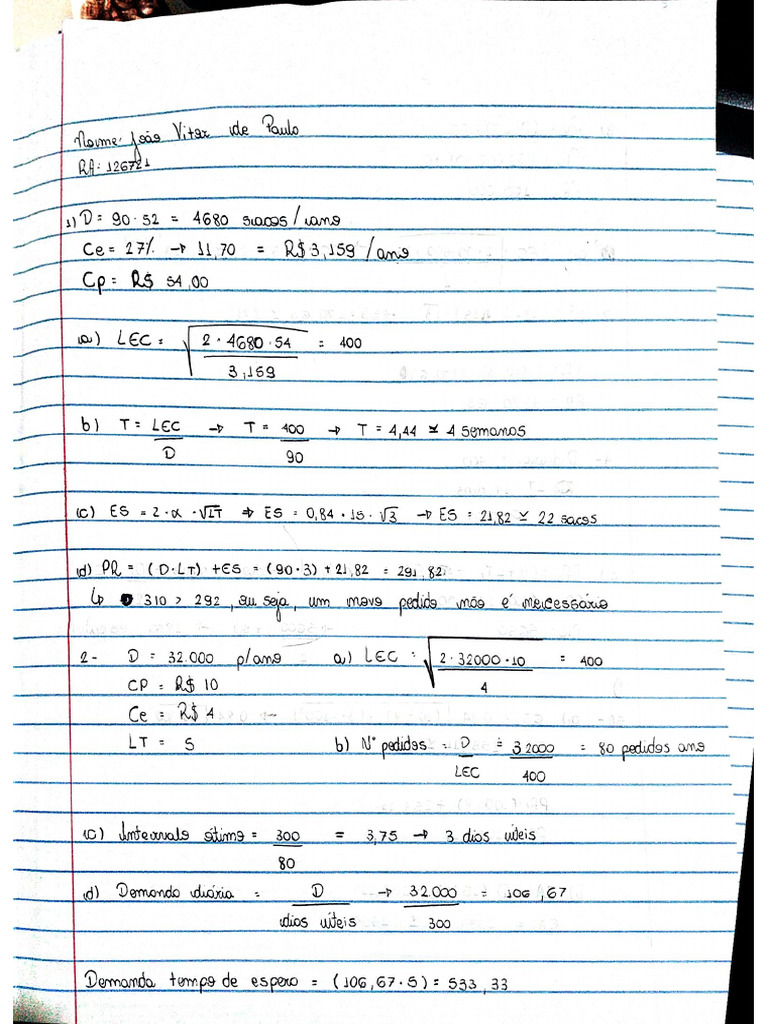 Nome: João Vitor de Paulo
RA: 126721
1) D = 90 · 52 = 4680 sacos / ano
Ce = 27% → 11,70 = R$ 3,159 / ano
Cp = R$ 54,00
a) LEC = √(2 · 4680 · 54 / 3,159) = 400
b) T = LEC / D → T = 400 / 90 → T = 4,44 ≃ 4 semanas
c) ES = 2 · α · √LT ⇒ ES = 0,84 · 15 · √3 → ES = 21,82 ≃ 22 sacos
d) PR = (D · LT) + ES = (90 · 3) + 21,82 = 291,82
↳ 310 > 292, ou seja, um novo pedido não é necessário
2- D = 32.000 p/ano
CP = R$ 10
Ce = R$ 4
LT = 5
a) LEC = √(2 · 32000 · 10 / 4) = 400
b) N° pedidos = D / LEC = 32000 / 400 = 80 pedidos ano
c) Intervalo ótimo = 300 / 80 = 3,75 → 3 dias úteis
d) Demanda diária = D / dias úteis → 32.000 / 300 = 106,67
Demanda tempo de espera = (106,67 · 5) = 533,33